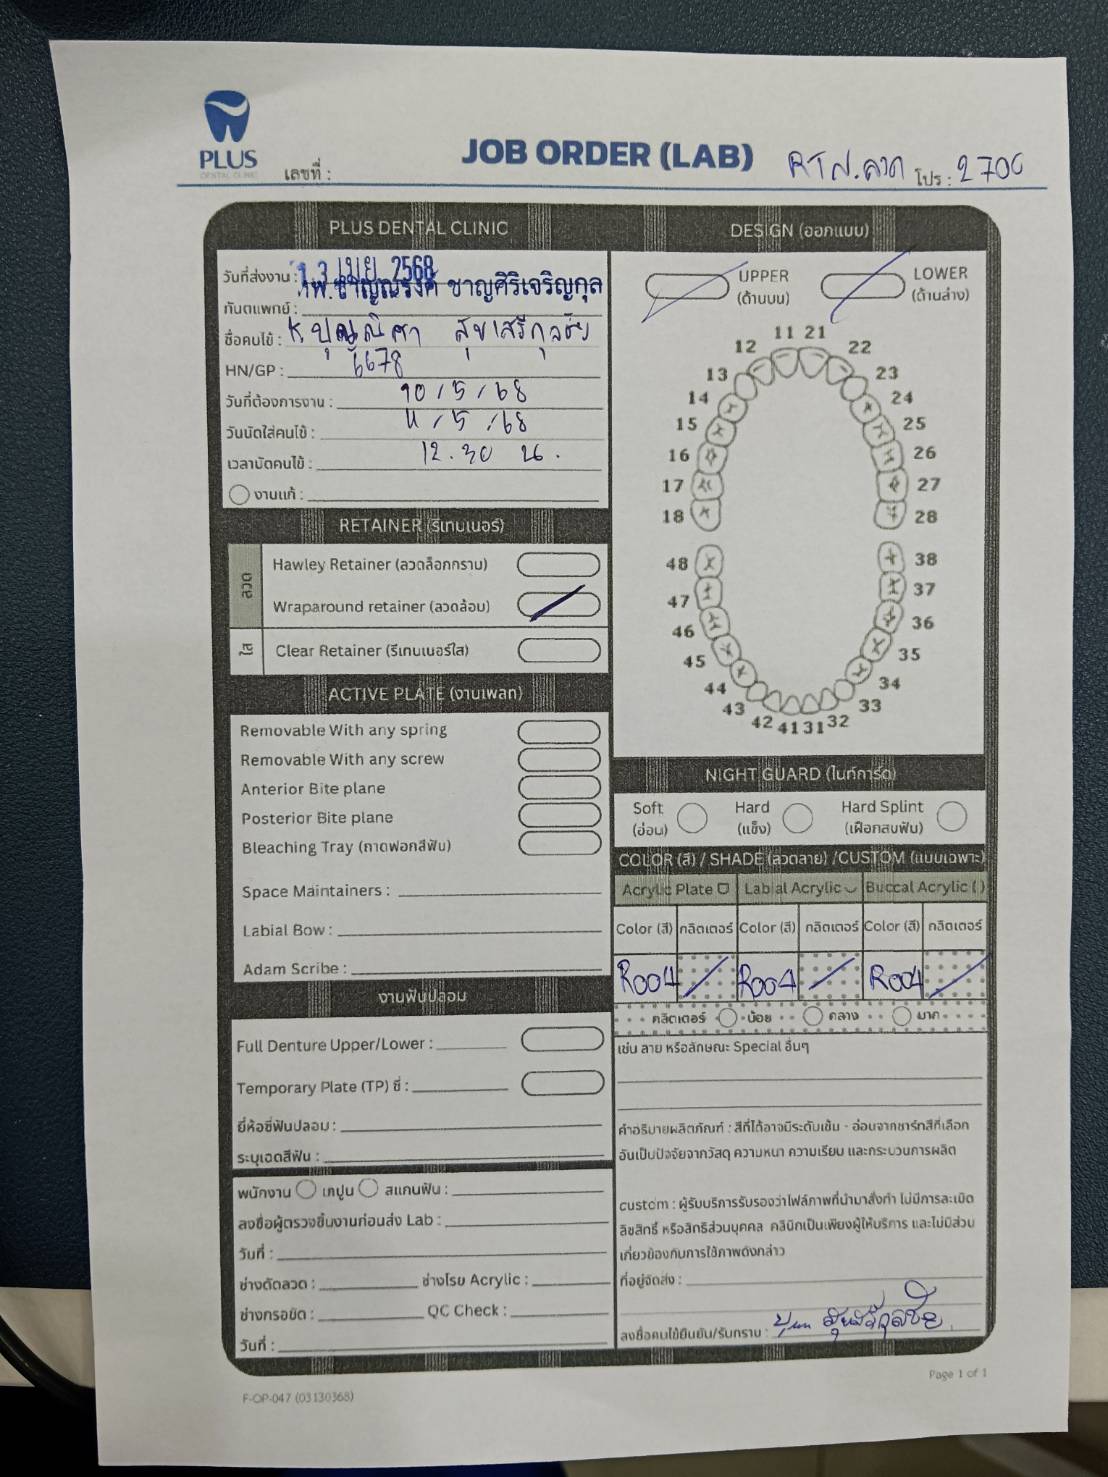 PLUS
DENTAL CLINIC
เลขที่ :
JOB ORDER (LAB)
RT ล.ลวด โปร : 2700
PLUS DENTAL CLINIC
วันที่ส่งงาน : 13 เมย 2568
ทันตแพทย์ : ทพ.ชาญณรงค์ ชาญศิริเจริญกุล
ชื่อคนไข้ : K. ปุณณิศา สุขเสรีกุลชัย
HN/GP : 6678
วันที่ต้องการงาน : 10/5/68
วันนัดใส่คนไข้ : 11/5/68
เวลานัดคนไข้ : 12.30 น.
งานแก้ :
RETAINER (รีเทนเนอร์)
ลวด
Hawley Retainer (ลวดล็อกกราม)
Wraparound retainer (ลวดล้อม)
ใส
Clear Retainer (รีเทนเนอร์ใส)
ACTIVE PLATE (งานเพลท)
Removable With any spring
Removable With any screw
Anterior Bite plane
Posterior Bite plane
Bleaching Tray (ถาดฟอกสีฟัน)
Space Maintainers :
Labial Bow :
Adam Scribe :
งานฟันปลอม
Full Denture Upper/Lower :
Temporary Plate (TP) ซี่ :
ยี่ห้อซี่ฟันปลอม :
ระบุเฉดสีฟัน :
พนักงาน เทปูน สแกนฟัน :
ลงชื่อผู้ตรวจชิ้นงานก่อนส่ง Lab :
วันที่ :
ช่างดัดลวด : ช่างโรย Acrylic :
ช่างกรอขัด : QC Check :
วันที่ :
DESIGN (ออกแบบ)
UPPER
(ด้านบน)
LOWER
(ด้านล่าง)
11 21
12 22
13 23
14 24
15 25
16 26
17 27
18 28
48 38
47 37
46 36
45 35
44 34
43 33
42 41 31 32
NIGHT GUARD (ไนท์การ์ด)
Soft
(อ่อน)
Hard
(แข็ง)
Hard Splint
(เฝือกสบฟัน)
COLOR (สี) / SHADE (ลวดลาย) /CUSTOM (แบบเฉพาะ)
Acrylic Plate Labial Acrylic Buccal Acrylic ( )
Color (สี) กลิตเตอร์ Color (สี) กลิตเตอร์ Color (สี) กลิตเตอร์
R004 R004 R004
กลิตเตอร์ น้อย กลาง มาก
เช่น ลาย หรือลักษณะ Special อื่นๆ
คำอธิบายผลิตภัณฑ์ : สีที่ได้อาจมีระดับเข้ม - อ่อนจากชาร์ทสีที่เลือก
อันเป็นปัจจัยจากวัสดุ ความหนา ความเรียบ และกระบวนการผลิต
custom : ผู้รับบริการรับรองว่าไฟล์ภาพที่นำมาสั่งทำ ไม่มีการละเมิด
ลิขสิทธิ์ หรือสิทธิส่วนบุคคล คลินิกเป็นเพียงผู้ให้บริการ และไม่มีส่วน
เกี่ยวข้องกับการใช้ภาพดังกล่าว
ที่อยู่จัดส่ง :
ลงชื่อคนไข้ยืนยัน/รับทราบ :
Page 1 of 1
F-OP-047 (03130368)